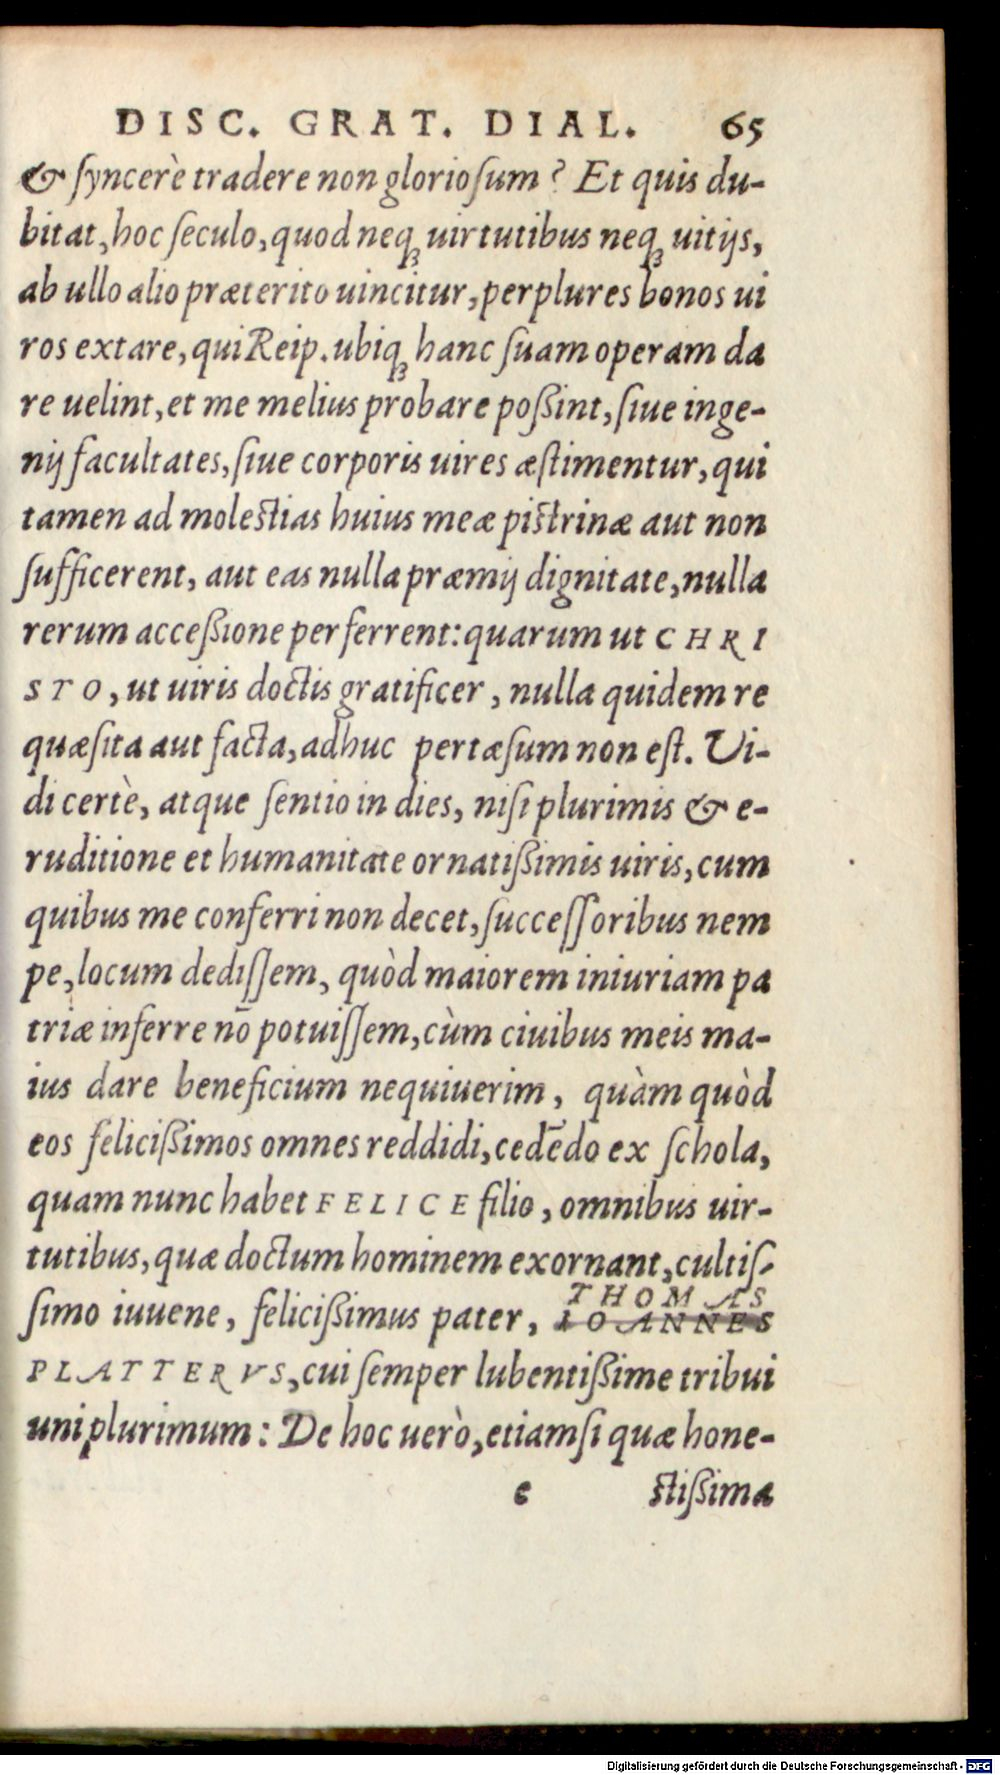 DISC. GRAT. DIAL. 65
& ſyncerè tradere non glorioſum? Et quis du-
bitat, hoc ſeculo, quod neqꝫ uirtutibus neqꝫ uitijs,
ab ullo alio præterito uincitur, perplures bonos ui
ros extare, qui Reip. ubiqꝫ hanc ſuam operam da
re uelint, et me melius probare poßint, ſiue inge-
nij facultates, ſiue corporis uires æſtimentur, qui
tamen ad moleſtias huius meæ piſtrinæ aut non
ſufficerent, aut eas nulla præmij dignitate, nulla
rerum acceßione perferrent: quarum ut CHRI
STO, ut uiris doctis gratificer, nulla quidem re
quæſita aut facta, adhuc pertæſum non eſt. Vi-
di certè, atque ſentio in dies, niſi plurimis & e-
ruditione et humanitate ornatißimis uiris, cum
quibus me conferri non decet, ſucceſſoribus nem
pe, locum dediſſem, quòd maiorem iniuriam pa
triæ inferre nō potuiſſem, cùm ciuibus meis ma-
ius dare beneficium nequiuerim, quàm quòd
eos felicißimos omnes reddidi, cedēdo ex ſchola,
quam nunc habet FELICE filio, omnibus uir-
tutibus, quæ doctum hominem exornant, cultiſ-
THOMAS
ſimo iuuene, felicißimus pater, IOANNES
PLATTERVS, cui ſemper lubentißime tribui
uni plurimum: De hoc uerò, etiamſi quæ hone-
e ſtißima
Digitalisierung gefördert durch die Deutsche Forschungsgemeinschaft - DFG